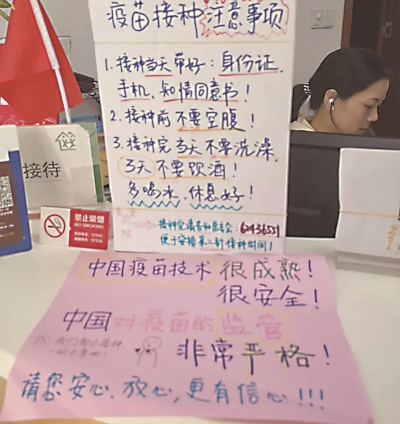 疫苗接种注意事项
1.接种当天带好：身份证、
手机、知情同意书！
2.接种前不要空腹！
3.接种完当天不要洗澡，
3天不要饮酒！
多喝水，休息好！
接种完请告知居委会：
便于安排第二针接种时间！
接待
禁止吸烟
NO SMOKING
中国疫苗技术很成熟！
很安全！
中国对疫苗的监管
非常严格！
PS:我们都已接种，
请您安心、放心，更有信心！！！